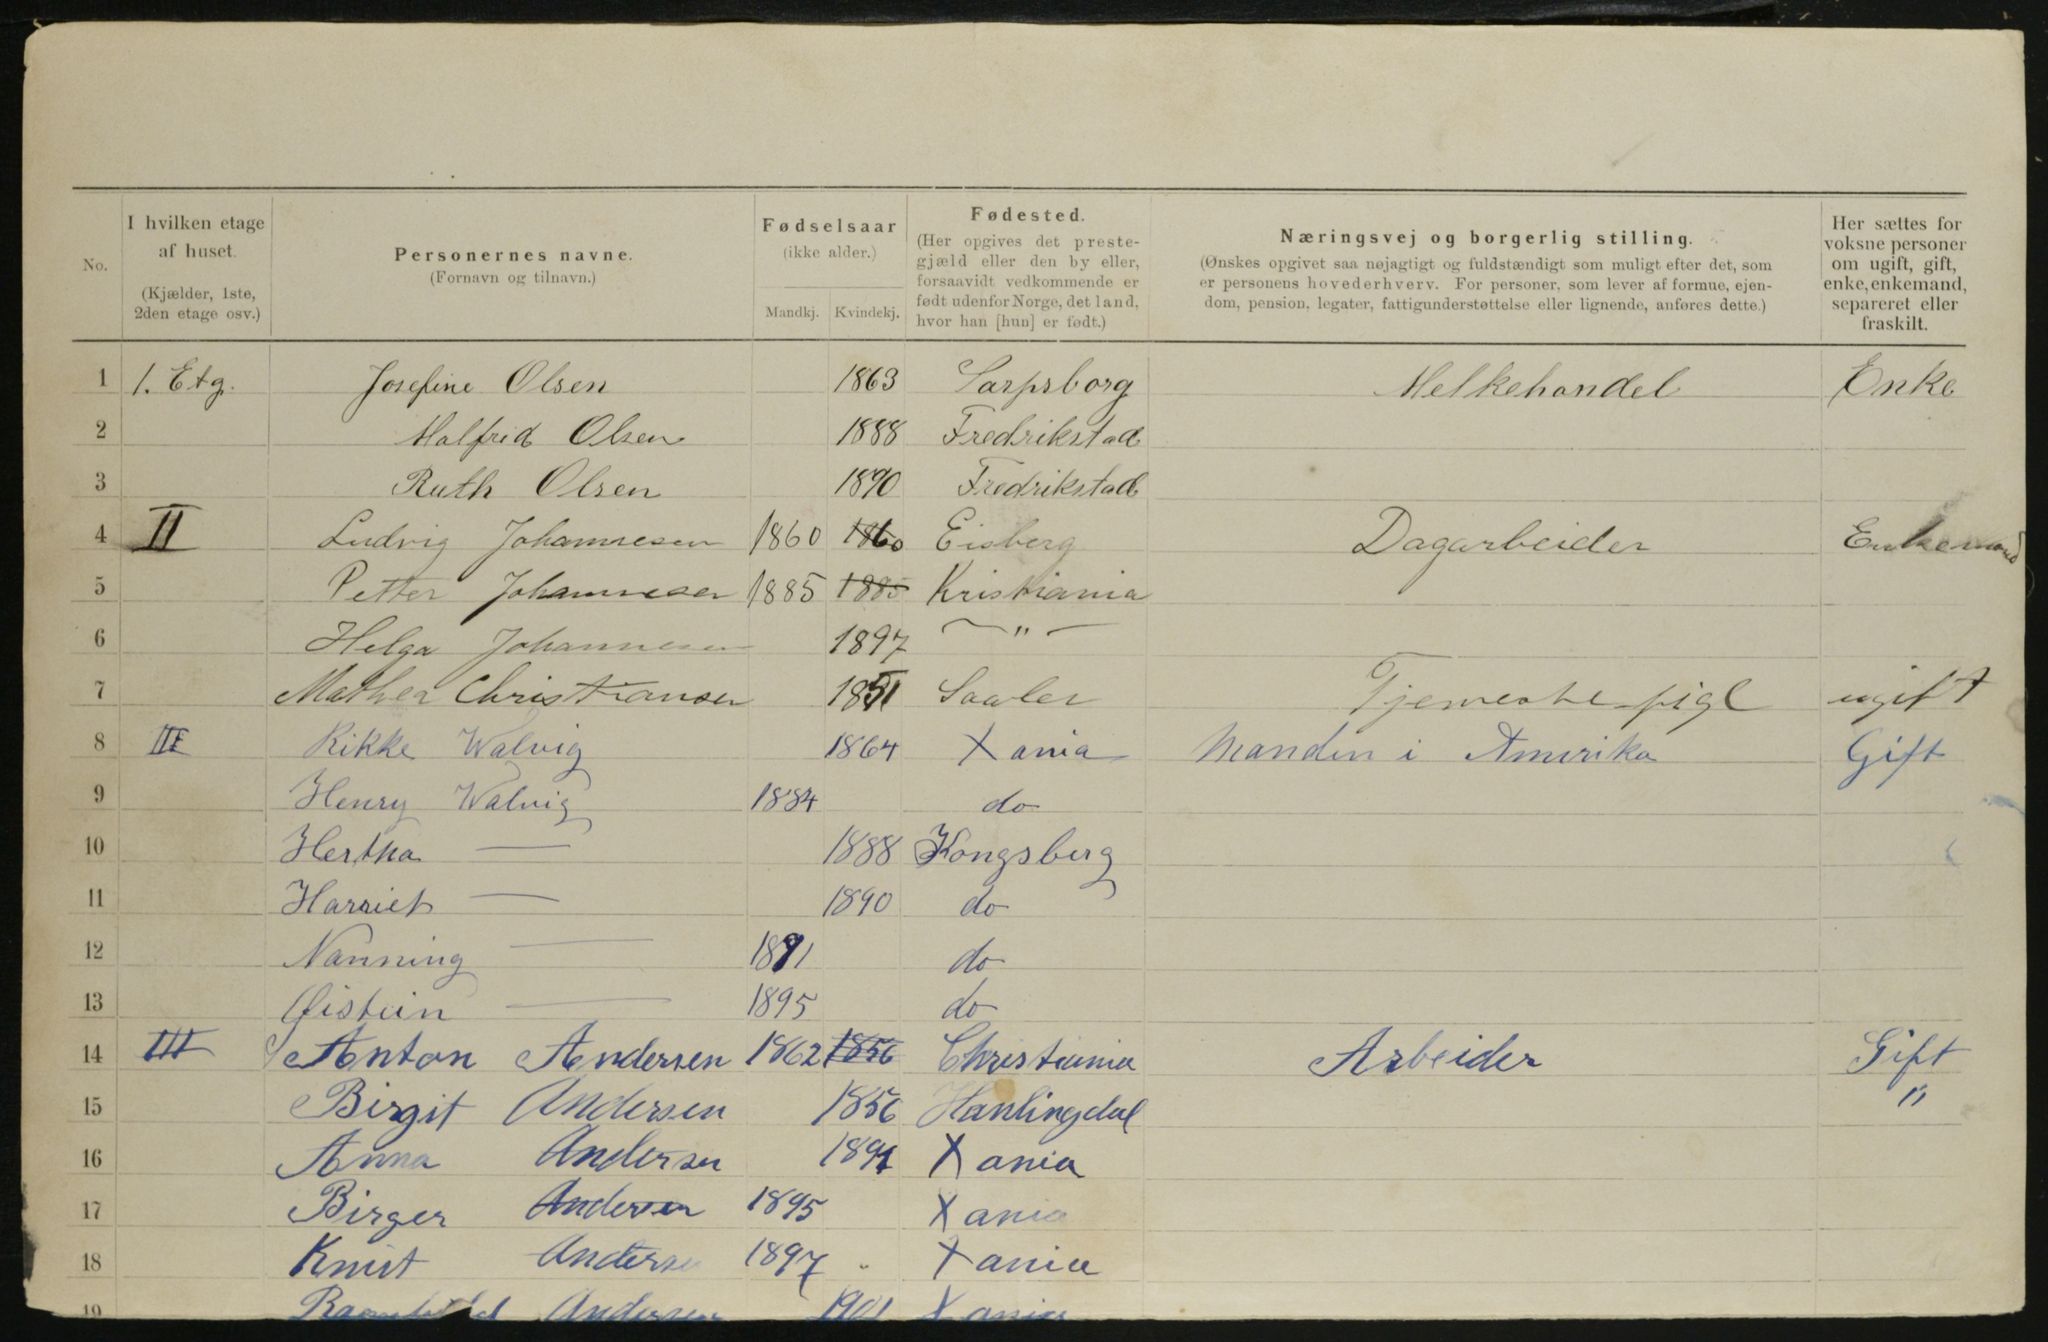 No.
I hvilken etage af huset.
(Kjælder, 1ste, 2den etage osv.)
Personernes navne.
(Fornavn og tilnavn.)
Fødselsaar
(ikke alder.)
Mandkj. Kvindekj.
Fødested.
(Her opgives det preste-
gjæld eller den by eller,
forsaavidt vedkommende er
født udenfor Norge, det land,
hvor han [hun] er født.)
Næringsvej og borgerlig stilling.
(Ønskes opgivet saa nøjagtigt og fuldstændigt som muligt efter det, som
er personens hovederhverv. For personer, som lever af formue, ejen-
dom, pension, legater, fattigunderstøttelse eller lignende, anføres dette.)
Her sættes for
voksne personer
om ugift, gift,
enke, enkemand,
separeret eller
fraskilt.
1 1. Etg. Josefine Olsen 1863 Sarpsborg Melkehandel Enke
2 Malfrid Olsen 1888 Fredrikstad
3 Ruth Olsen 1890 Fredrikstad
4 II Ludvig Johannesen 1860 1860 Eisberg Dagarbeider Enkemand
5 Petter Johannesen 1885 1885 Kristiania
6 Helga Johannesen 1897 — " —
7 Mathea Christiansen 1851 Saaler Tjeneste pige ugift
8 III Rikke Walvig 1864 Xania Manden i Amerika Gift
9 Henry Walvig 1884 do
10 Hertha — 1888 Kongsberg
11 Harriet — 1890 do
12 Nanning — 1891 do
13 Øistein — 1895 do
14 III Anton Andersen 1862 1856 Christiania Arbeider Gift
15 Birgit Andersen 1856 Hanlingdal "
16 Anna Andersen Xania
17 Birger Andersen 1895 Xania
18 Knut Andersen 1897 Xania
19 Andersen 1901 Xania